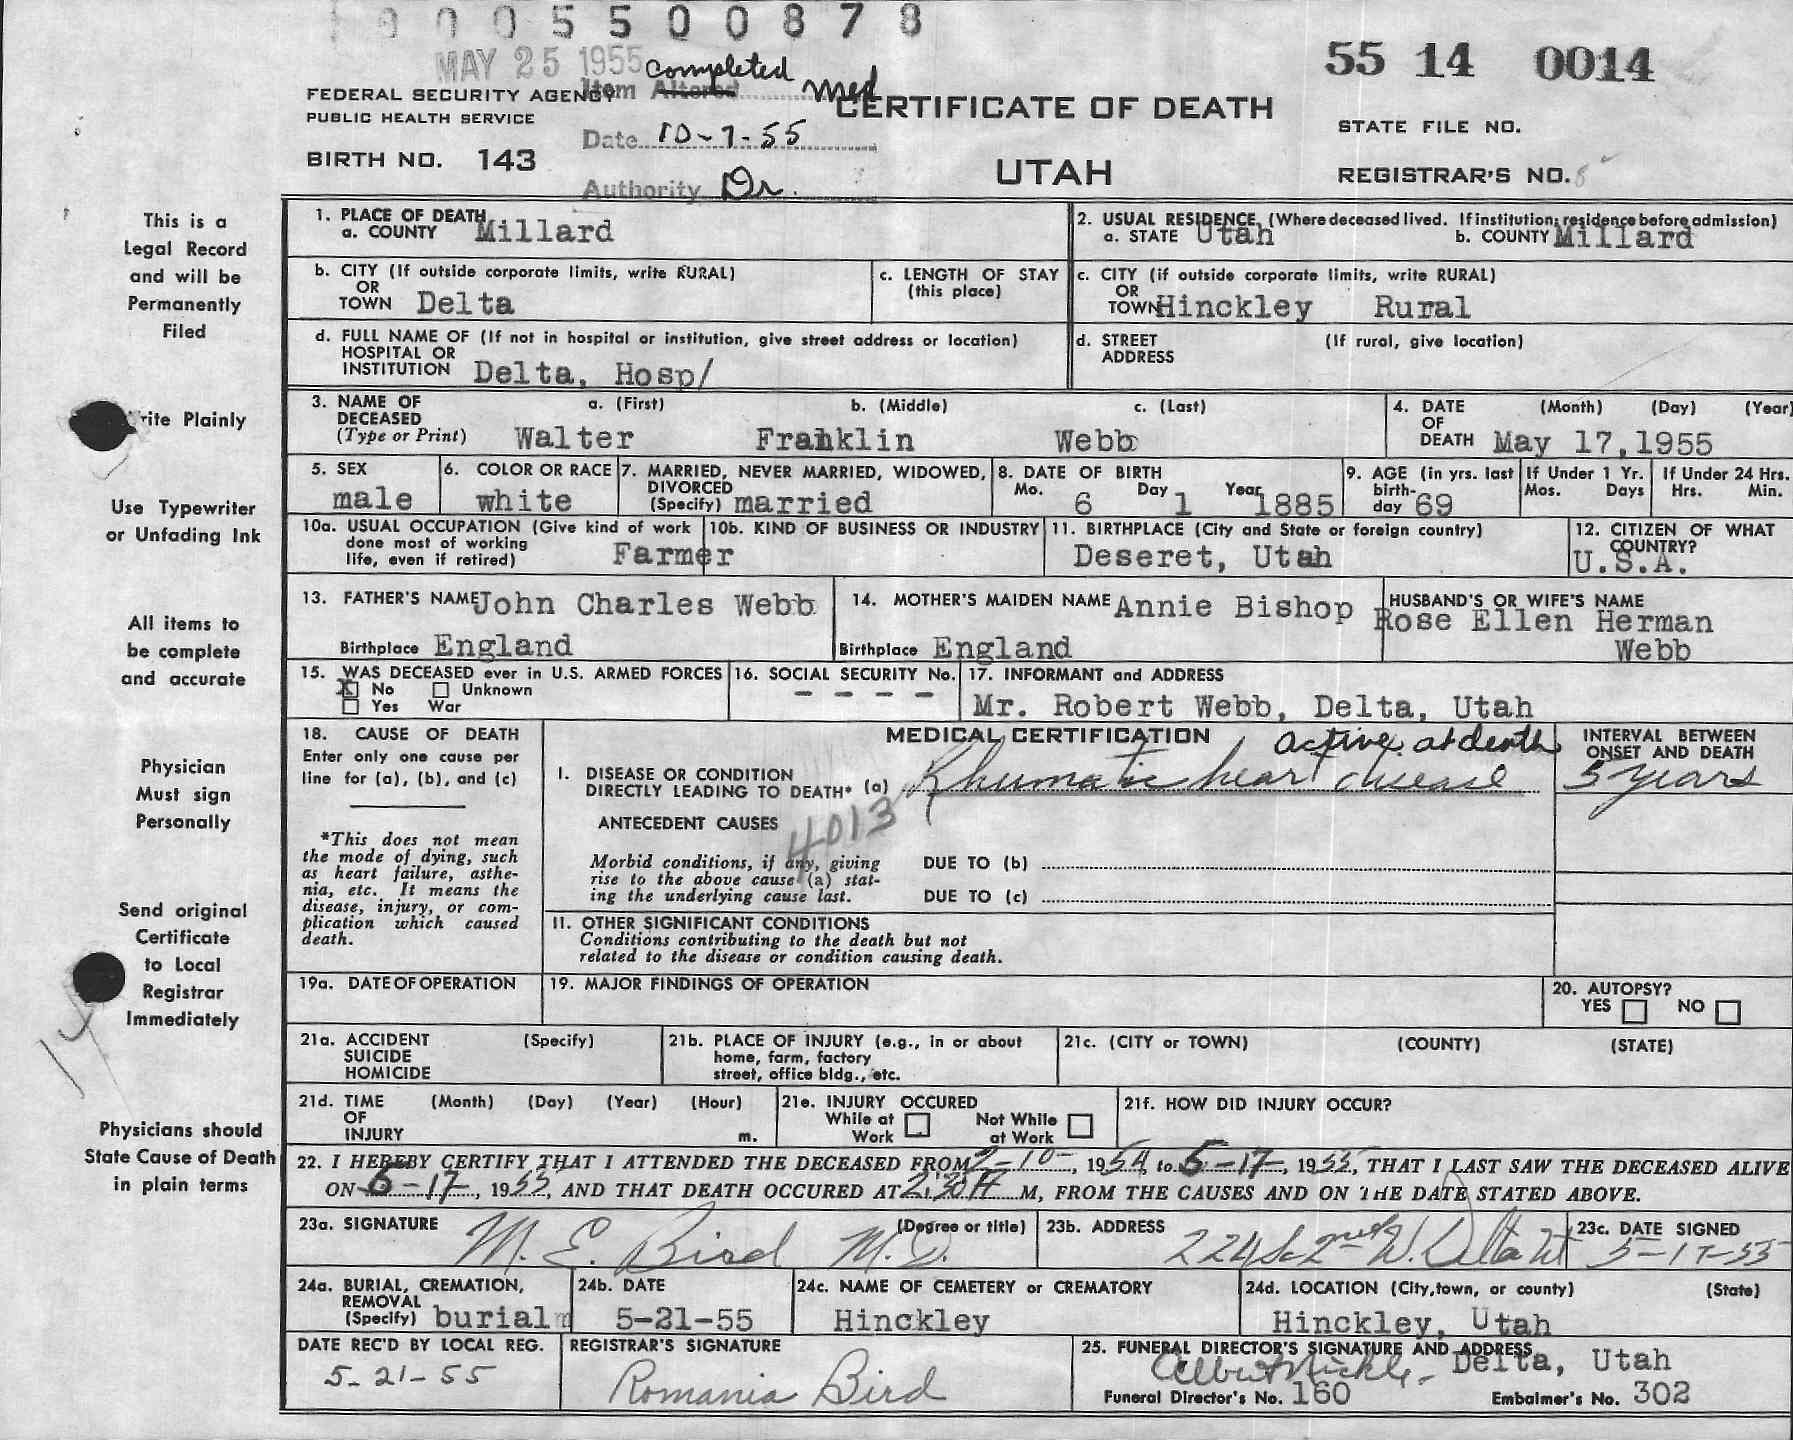 0005500878
MAY 25 1955
Item Altered completed med
Date 10-7-55
Authority Dr.
55 14 0014
FEDERAL SECURITY AGENCY
PUBLIC HEALTH SERVICE
BIRTH NO. 143
CERTIFICATE OF DEATH
UTAH
STATE FILE NO.
REGISTRAR'S NO. 8
This is a
Legal Record
and will be
Permanently
Filed
Write Plainly
Use Typewriter
or Unfading Ink
All items to
be complete
and accurate
Physician
Must sign
Personally
Send original
Certificate
to Local
Registrar
Immediately
14
Physicians should
State Cause of Death
in plain terms
1. PLACE OF DEATH
a. COUNTY Millard
2. USUAL RESIDENCE (Where deceased lived. If institution: residence before admission)
a. STATE Utah b. COUNTY Millard
b. CITY (If outside corporate limits, write RURAL)
OR
TOWN Delta
c. LENGTH OF STAY
(this place)
c. CITY (if outside corporate limits, write RURAL)
OR
TOWN Hinckley Rural
d. FULL NAME OF (If not in hospital or institution, give street address or location)
HOSPITAL OR
INSTITUTION Delta, Hosp/
d. STREET (If rural, give location)
ADDRESS
3. NAME OF DECEASED (Type or Print)
a. (First) b. (Middle) c. (Last)
Walter Franklin Webb
4. DATE OF DEATH (Month) (Day) (Year)
May 17,1955
5. SEX
male
6. COLOR OR RACE
white
7. MARRIED, NEVER MARRIED, WIDOWED,
DIVORCED
(Specify) married
8. DATE OF BIRTH
Mo. 6 Day 1 Year 1885
9. AGE (in yrs. last
birth-
day 69
If Under 1 Yr.
Mos. Days
If Under 24 Hrs.
Hrs. Min.
10a. USUAL OCCUPATION (Give kind of work
done most of working
life, even if retired) Farmer
10b. KIND OF BUSINESS OR INDUSTRY
11. BIRTHPLACE (City and State or foreign country)
Deseret, Utah
12. CITIZEN OF WHAT
COUNTRY?
U.S.A.
13. FATHER'S NAME John Charles Webb
Birthplace England
14. MOTHER'S MAIDEN NAME Annie Bishop
Birthplace England
HUSBAND'S OR WIFE'S NAME
Rose Ellen Herman
Webb
15. WAS DECEASED ever in U.S. ARMED FORCES
X No Unknown
Yes War
16. SOCIAL SECURITY No.
- - - -
17. INFORMANT and ADDRESS
Mr. Robert Webb, Delta, Utah
18. CAUSE OF DEATH
Enter only one cause per
line for (a), (b), and (c)
*This does not mean
the mode of dying, such
as heart failure, asthe-
nia, etc. It means the
disease, injury, or com-
plication which caused
death.
MEDICAL CERTIFICATION
active at death
I. DISEASE OR CONDITION
DIRECTLY LEADING TO DEATH* (a) Rhumatic heart disease
4013
ANTECEDENT CAUSES
Morbid conditions, if any, giving
rise to the above cause (a) stat-
ing the underlying cause last.
DUE TO (b)
DUE TO (c)
II. OTHER SIGNIFICANT CONDITIONS
Conditions contributing to the death but not
related to the disease or condition causing death.
INTERVAL BETWEEN
ONSET AND DEATH
5 years
19a. DATE OF OPERATION
19. MAJOR FINDINGS OF OPERATION
20. AUTOPSY?
YES NO
21a. ACCIDENT (Specify)
SUICIDE
HOMICIDE
21b. PLACE OF INJURY (e.g., in or about
home, farm, factory
street, office bldg., etc.
21c. (CITY or TOWN) (COUNTY) (STATE)
21d. TIME (Month) (Day) (Year) (Hour)
OF
INJURY m.
21e. INJURY OCCURED
While at Work Not While at Work
21f. HOW DID INJURY OCCUR?
22. I HEREBY CERTIFY THAT I ATTENDED THE DECEASED FROM 2-10-, 1954, to 5-17-, 1955, THAT I LAST SAW THE DECEASED ALIVE
ON 5-17-, 1955, AND THAT DEATH OCCURED AT 2:30 A M, FROM THE CAUSES AND ON THE DATE STATED ABOVE.
23a. SIGNATURE (Degree or title)
M. E. Bird M.D.
23b. ADDRESS
224 So 2nd W. Delta Ut
23c. DATE SIGNED
5-17-55
24a. BURIAL, CREMATION,
REMOVAL
(Specify) burial
24b. DATE
5-21-55
24c. NAME OF CEMETERY or CREMATORY
Hinckley
24d. LOCATION (City, town, or county) (State)
Hinckley, Utah
DATE REC'D BY LOCAL REG.
5-21-55
REGISTRAR'S SIGNATURE
Romania Bird
25. FUNERAL DIRECTOR'S SIGNATURE AND ADDRESS
Albert Nickle - Delta, Utah
Funeral Director's No. 160 Embalmer's No. 302